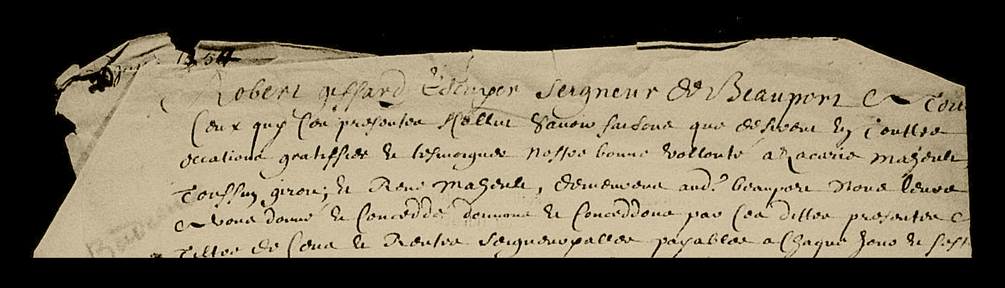 1654
Robert giffard Escuyer Seigneur de Beauport A Tous
Ceux quy Ces presentes Lettres Savoir faisons que desirent En Toutes
occations gratiffier et tesmoigner nostre bonne vollonté a Zacarie maheult
Toussin giron; et René maheult, demeurens aud.t beauport nous leurs
Avons donné et Conceddé donnons et Conceddons par Ces dittes presentes A
Tiltre de Cens et Rentes Seigneuralles payables a Chaque Jour et fest